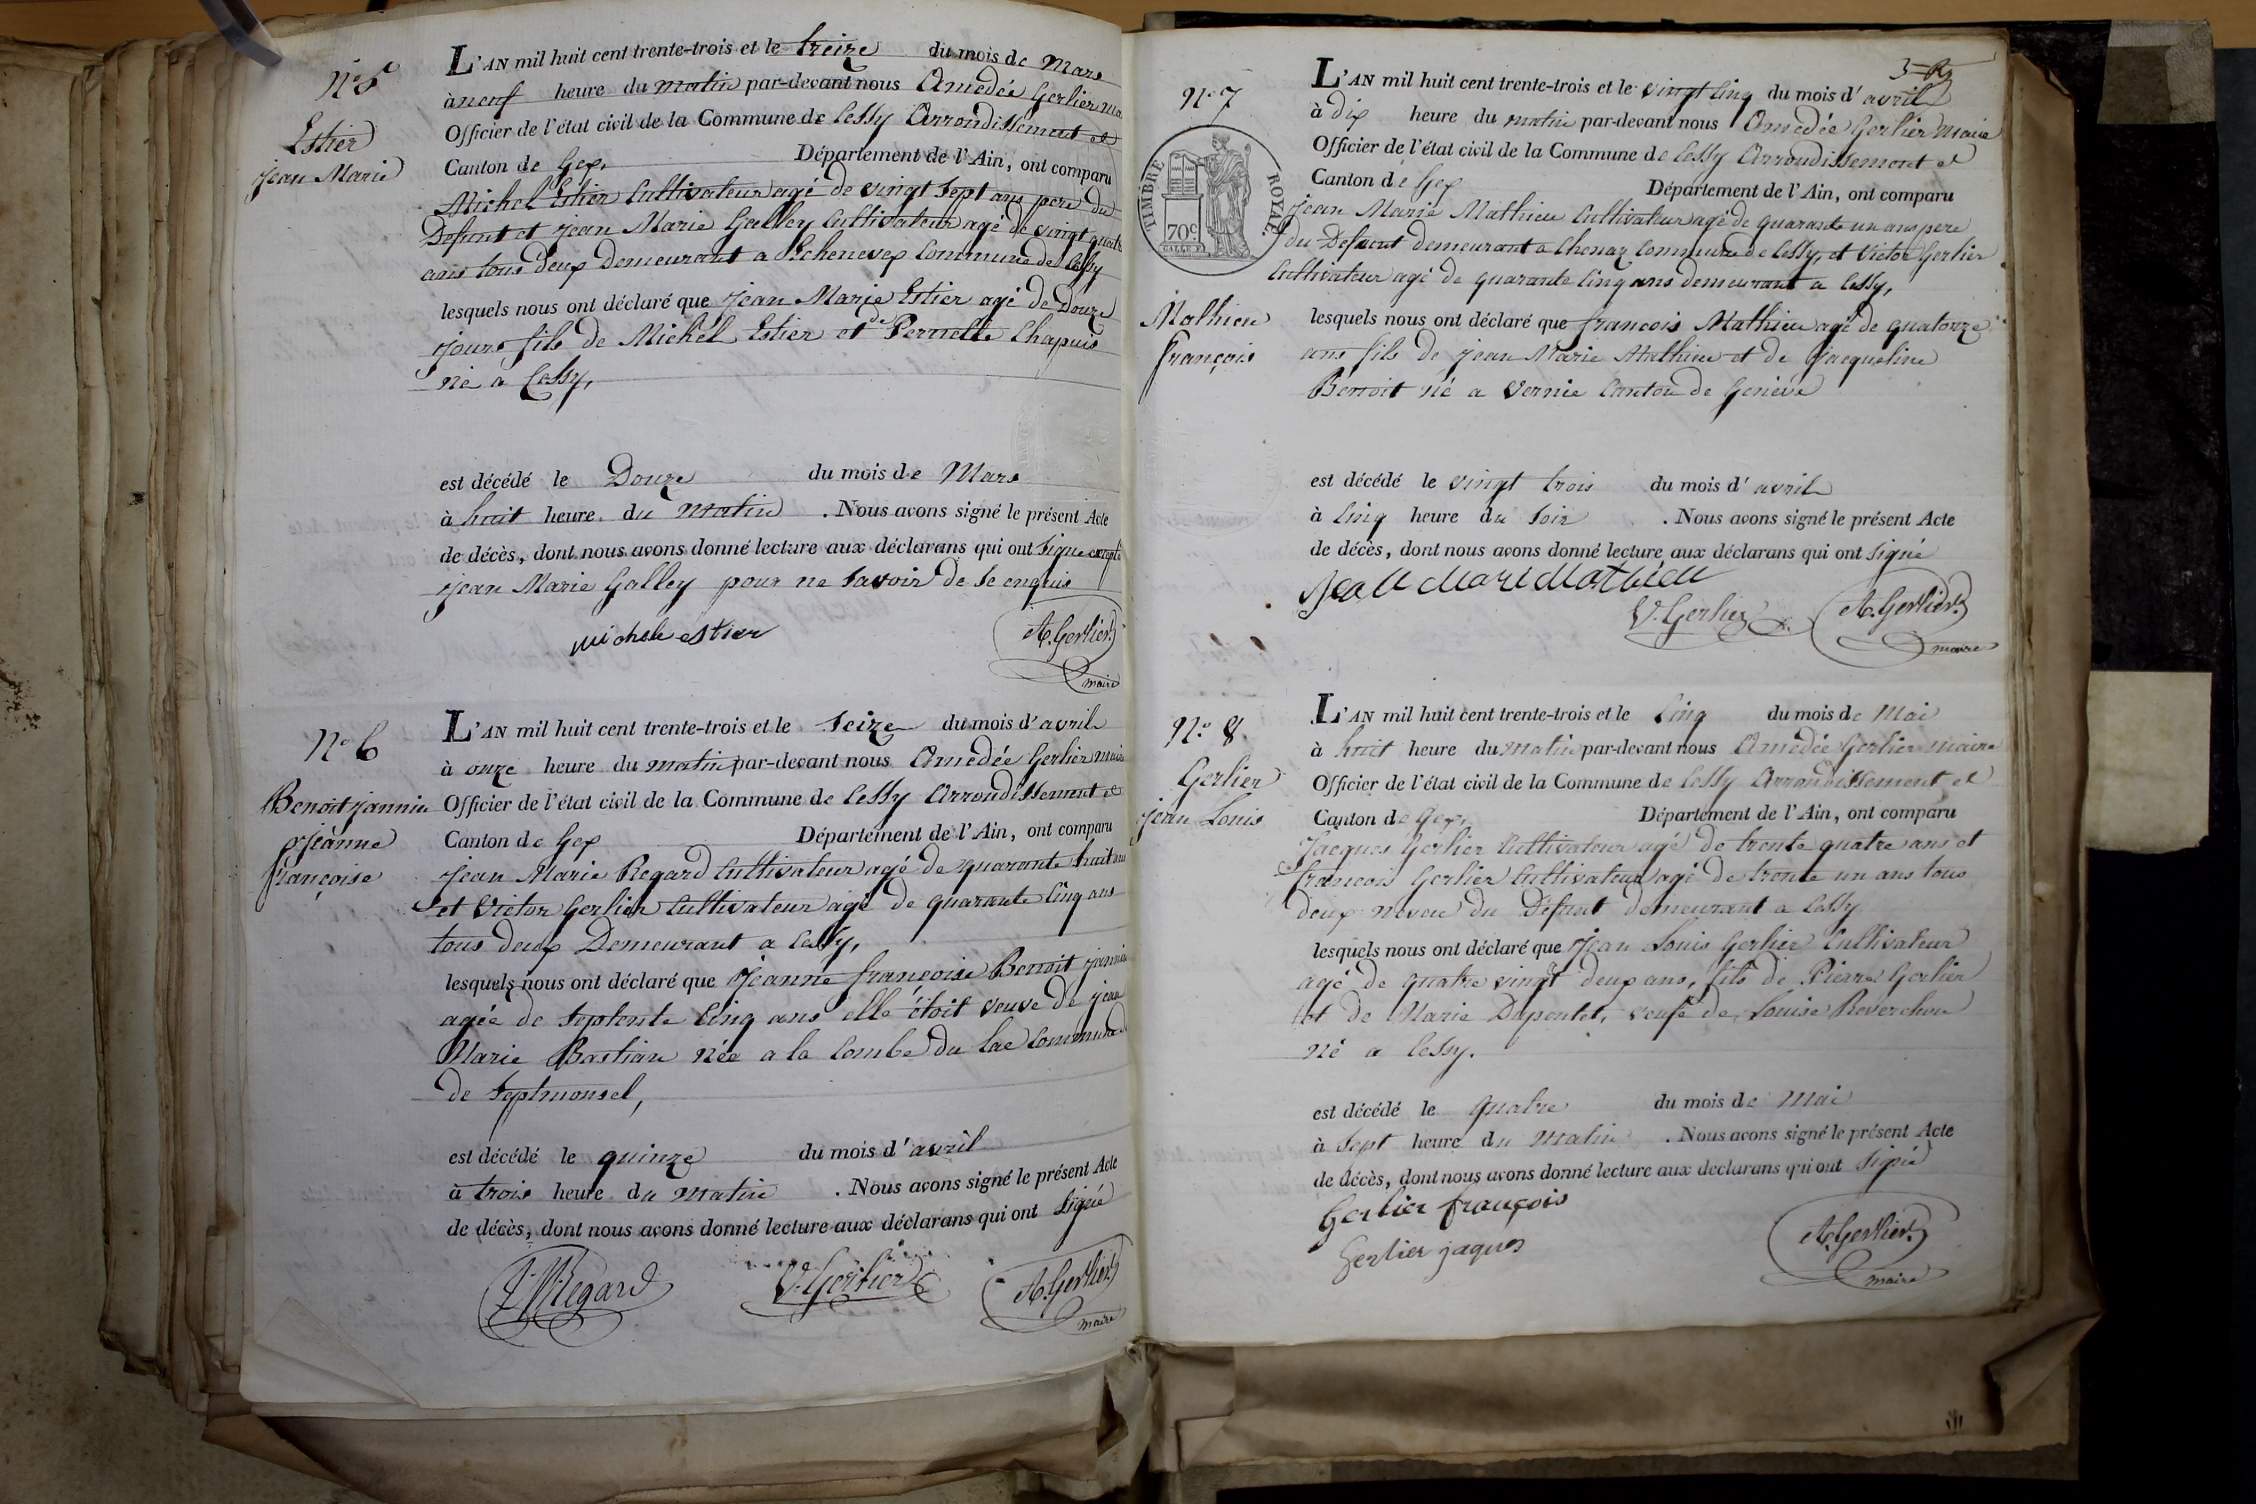 N.o 5
Estier
jean Marie
L'AN mil huit cent trente-trois et le treize du mois de Mars
à neuf heure du matin par-devant nous Amedée Gerlier
Officier de l'état civil de la Commune de Cessy Arrondissement et
Canton de Gex, Département de l'Ain, ont comparu
Michel Estier Cultivateur agé de vingt sept ans pere du
Defunt et jean Marie Galley Cultivateur agé de vingt quatre
ans tous deux Demeurant a Echenevex Commune de Cessy
lesquels nous ont déclaré que jean Marie Estier agé de Douze
jours fils de Michel Estier et de Pernette Chapuis
né a Cessy,
est décédé le Douze du mois de Mars
à huit heure du Matin . Nous avons signé le présent Acte
de décès, dont nous avons donné lecture aux déclarans qui ont signé excepté
jean Marie Galley pour ne savoir de se enquis
michele estier
A. Gerlier
maire
N.o 6
Benoit jannin
Jeanne
françoise
L'AN mil huit cent trente-trois et le seize du mois d'avril
à onze heure du matin par-devant nous Amedée Gerlier maire
Officier de l'état civil de la Commune de Cessy Arrondissement et
Canton de Gex Département de l'Ain, ont comparu
jean Marie Regard Cultivateur agé de quarante huit ans
et Victor Gerlier Cultivateur agé de quarante Cinq ans
tous deux Demeurant a Cessy,
lesquels nous ont déclaré que Jeanne françoise Benoit jannin
agée de septente Cinq ans elle étoit veuve de jean
Marie Bastian née a la Combe du Lac Commune
de Septmonsel,
est décédé le quinze du mois d'avril
à trois heure du matin . Nous avons signé le présent Acte
de décès, dont nous avons donné lecture aux déclarans qui ont signé
Regard
V. Gerlier
A. Gerlier
maire
N.o 7
TIMBRE ROYAL.
70c
Mathieu
françois
L'AN mil huit cent trente-trois et le vingt Cinq du mois d'avril
à dix heure du matin par-devant nous Amedée Gerlier Maire
Officier de l'état civil de la Commune de Cessy Arrondissement et
Canton de Gex Département de l'Ain, ont comparu
jean Marie Mathieu Cultivateur agé de quarante un ans pere
du Defunt demeurant a Chenaz Commune de Cessy, et Victor Gerlier
Cultivateur agé de quarante Cinq ans demeurant a Cessy,
lesquels nous ont déclaré que francois Mathieu agé de quatorze
ans fils de jean Marie Mathieu et de Jacqueline
Benoit né a Vernie Canton de Genève
est décédé le vingt trois du mois d'avril
à Cinq heure du soir . Nous avons signé le présent Acte
de décès, dont nous avons donné lecture aux déclarans qui ont signé
Jean Marie Mathieu
V. Gerlier
A. Gerlier
maire
N.o 8
Gerlier
jean Louis
L'AN mil huit cent trente-trois et le Cinq du mois de Mai
à huit heure du matin par-devant nous Amedée Gerlier maire
Officier de l'état civil de la Commune de Cessy Arrondissement et
Canton de Gex, Département de l'Ain, ont comparu
Jacques Gerlier Cultivateur agé de trente quatre ans et
francois Gerlier Cultivateur agé de trente un ans tous
deux neveu du Défunt demeurant a Cessy
lesquels nous ont déclaré que Jean Louis Gerlier Cultivateur
agé de quatre vingt deux ans, fils de Pierre Gerlier
et de Marie Dupontet, veufe de Louise Reverchon
né a Cessy.
est décédé le quatre du mois de Mai
à sept heure du Matin . Nous avons signé le présent Acte
de décès, dont nous avons donné lecture aux declarans qui ont signé
Gerlier françois
Gerlier jaques
A. Gerlier
maire